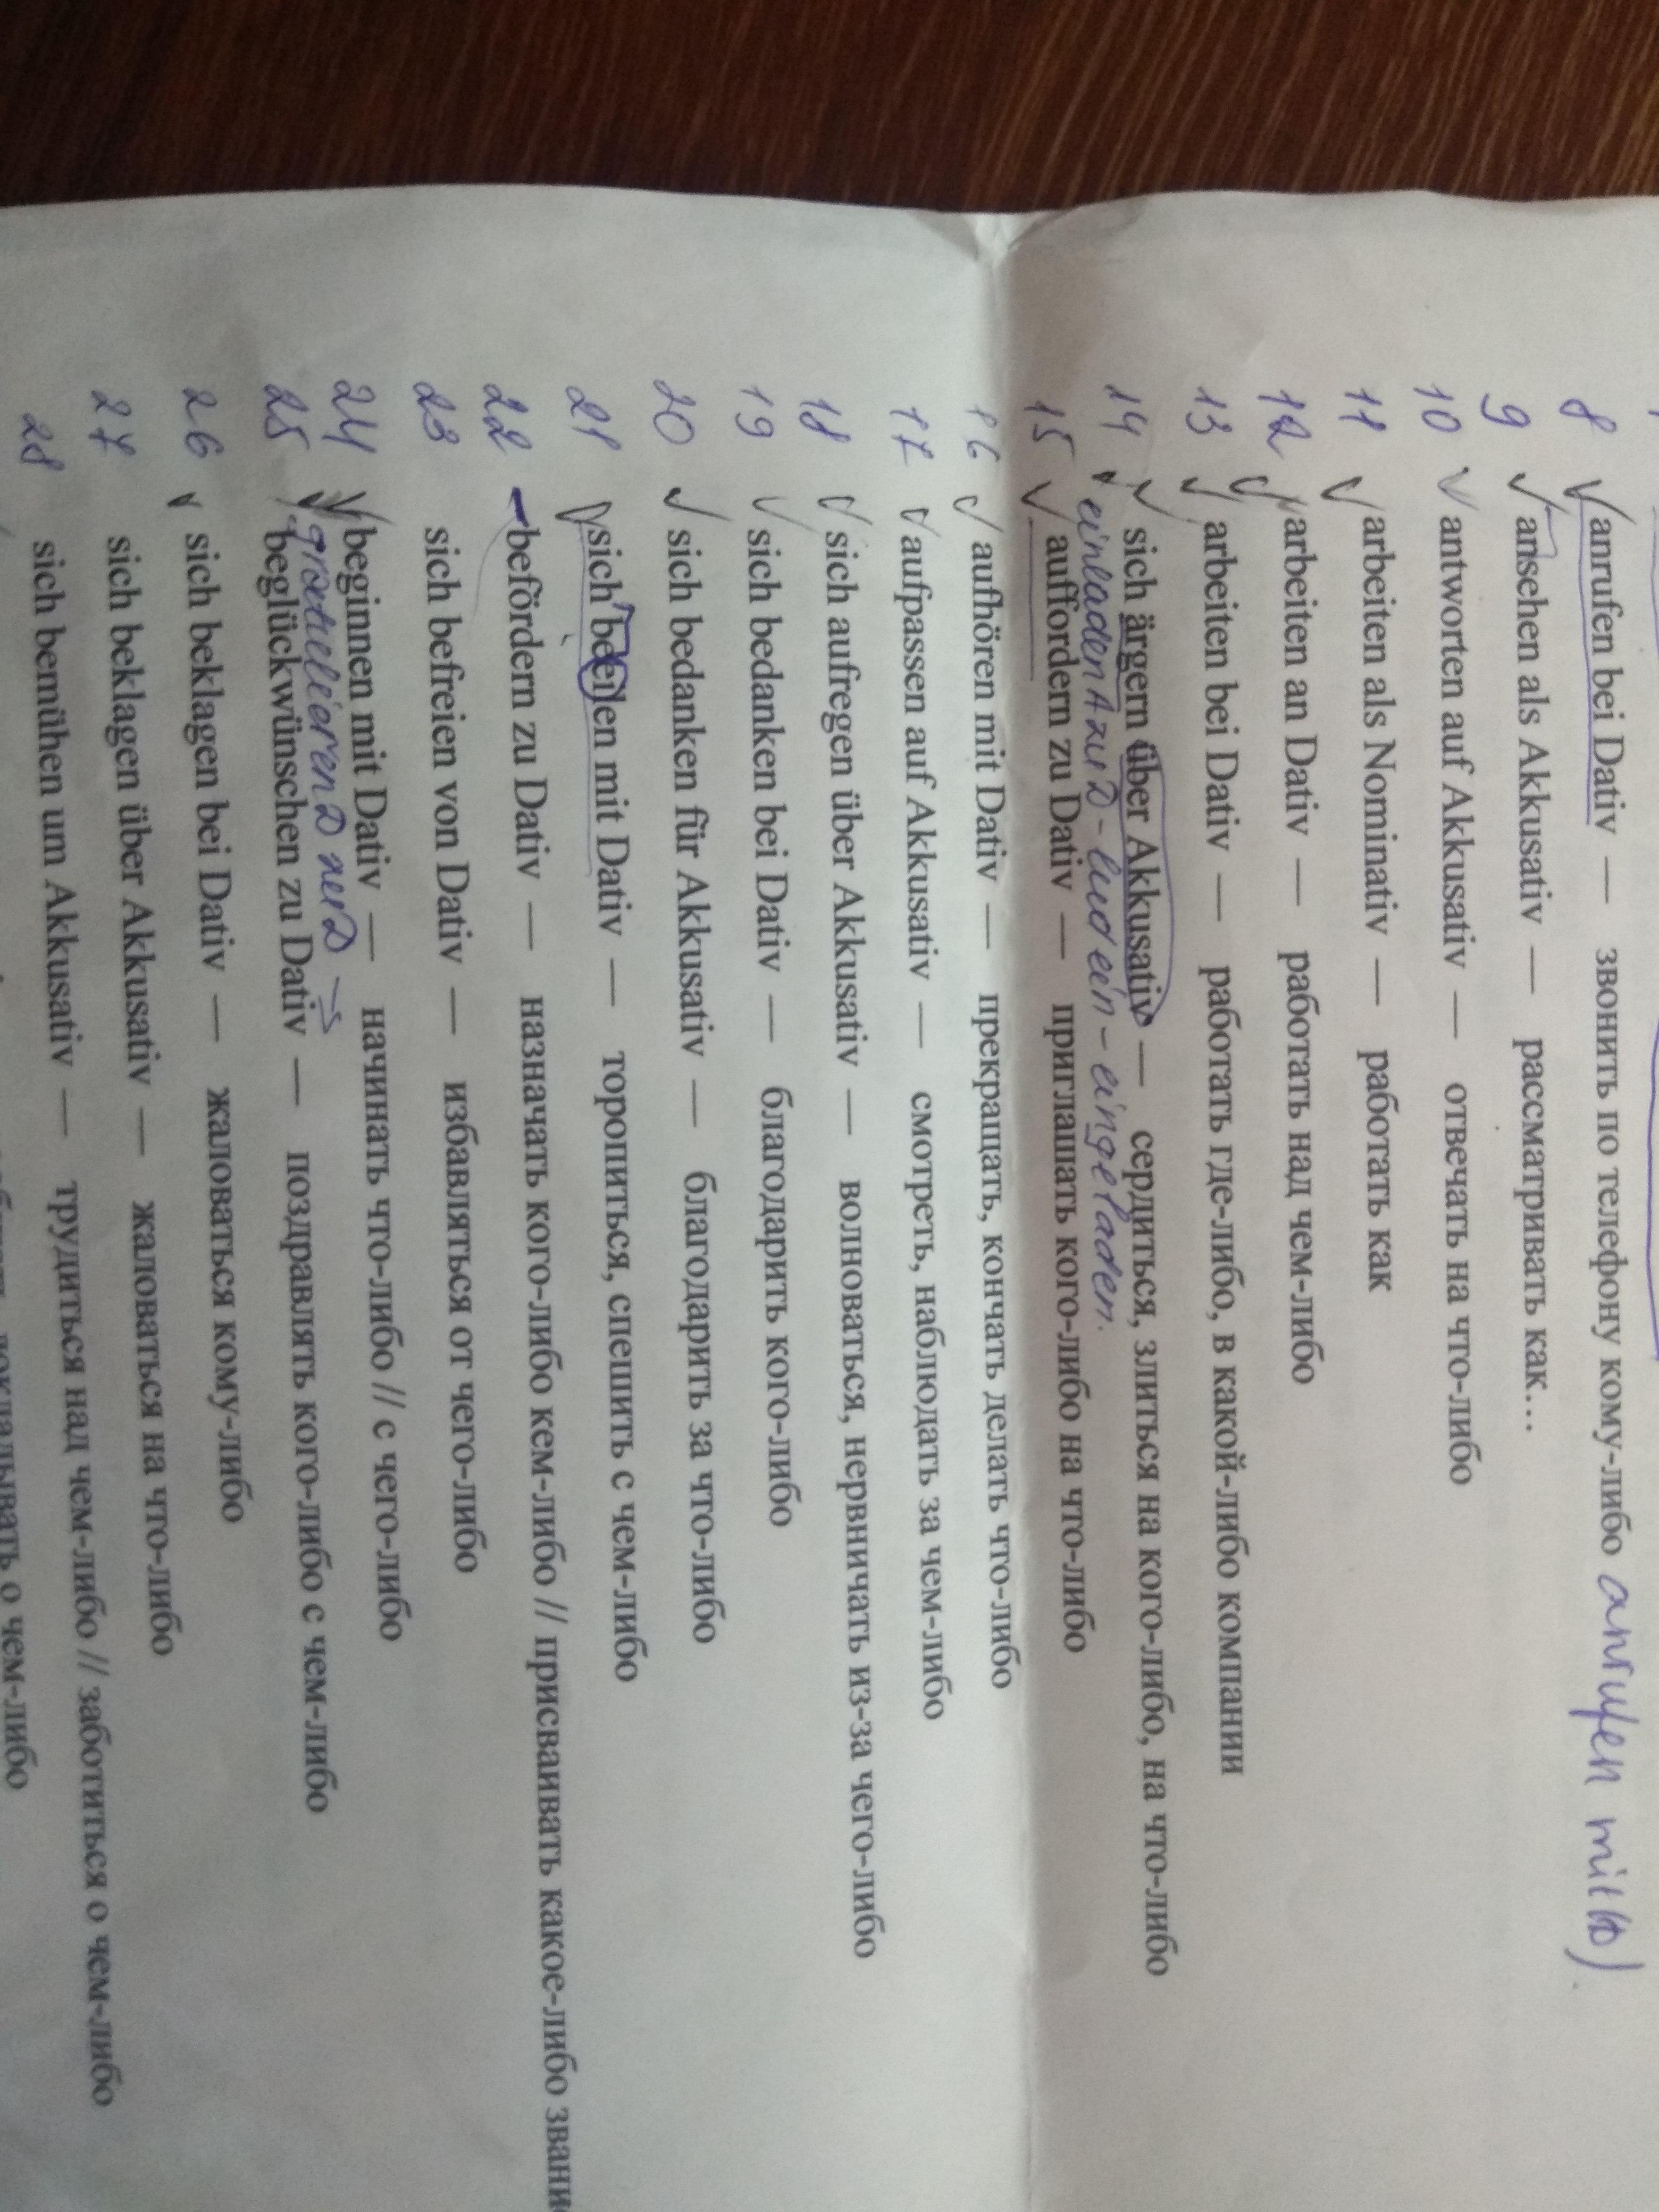 8 anrufen bei Dativ — звонить по телефону кому-либо anrufen mit
9 ansehen als Akkusativ — рассматривать как…
10 antworten auf Akkusativ — отвечать на что-либо
11 arbeiten als Nominativ — работать как
12 arbeiten an Dativ — работать над чем-либо
13 arbeiten bei Dativ — работать где-либо, в какой-либо компании
14 sich ärgern über Akkusativ — сердиться, злиться на кого-либо, на что-либо
einladen A zu D - lud ein - eingeladen.
15 auffordern zu Dativ — приглашать кого-либо на что-либо
16 aufhören mit Dativ — прекращать, кончать делать что-либо
17 aufpassen auf Akkusativ — смотреть, наблюдать за чем-либо
18 sich aufregen über Akkusativ — волноваться, нервничать из-за чего-либо
19 sich bedanken bei Dativ — благодарить кого-либо
20 sich bedanken für Akkusativ — благодарить за что-либо
21 sich beeilen mit Dativ — торопиться, спешить с чем-либо
22 befördern zu Dativ — назначать кого-либо кем-либо // присваивать какое-либо звание
23 sich befreien von Dativ — избавляться от чего-либо
24 beginnen mit Dativ — начинать что-либо // с чего-либо
gratulieren D zu D
25 beglückwünschen zu Dativ — поздравлять кого-либо с чем-либо
26 sich beklagen bei Dativ — жаловаться кому-либо
27 sich beklagen über Akkusativ — жаловаться на что-либо
28 sich bemühen um Akkusativ — трудиться над чем-либо // заботиться о чем-либо
докладывать о чем-либо